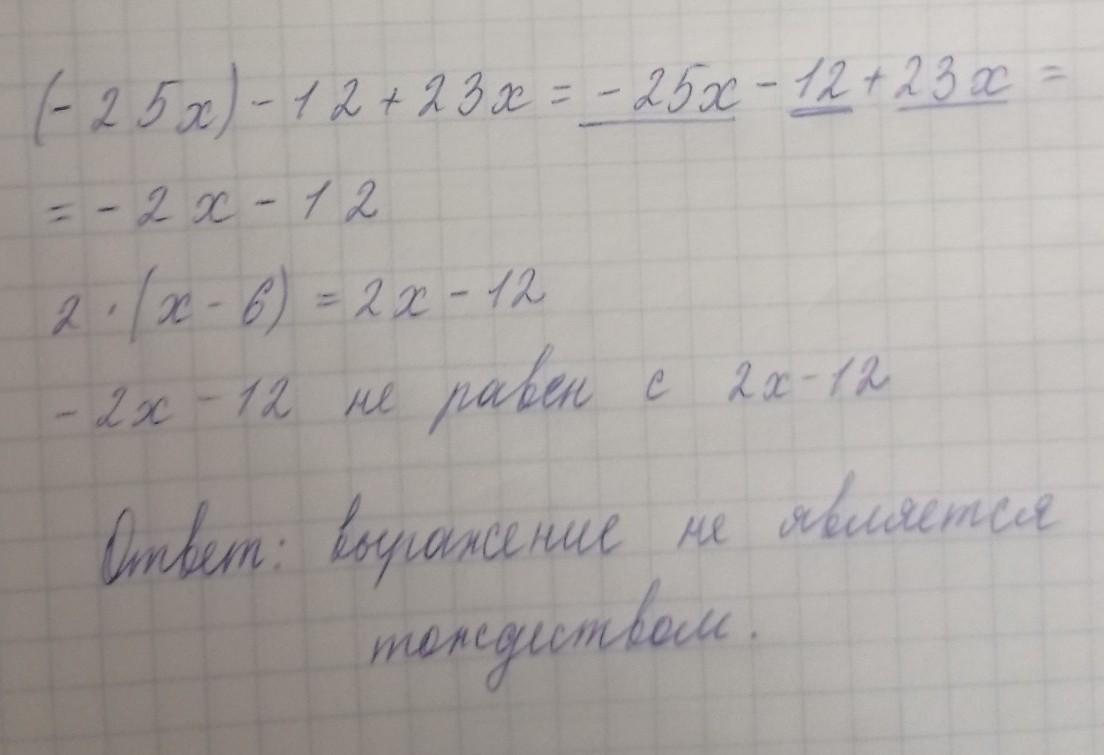 (-25x)-12+23x = -25x - 12 + 23x =
= -2x - 12
2·(x-6) = 2x - 12
-2x - 12 не равен с 2x-12
Ответ: выражение не является
тождеством.